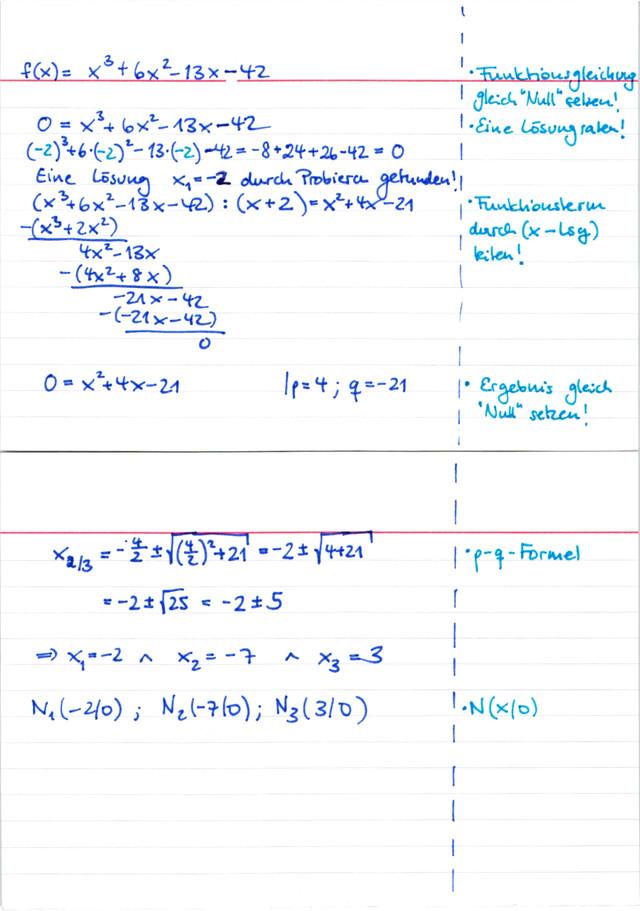 f(x) = x³ + 6x² - 13x - 42
• Funktionsgleichung
gleich "Null" setzen!
0 = x³ + 6x² - 13x - 42
• Eine Lösung raten!
(-2)³ + 6·(-2)² - 13·(-2) - 42 = -8 + 24 + 26 - 42 = 0
Eine Lösung x₁ = -2 durch Probieren gefunden!
(x³ + 6x² - 13x - 42) : (x + 2) = x² + 4x - 21
• Funktionsterm
durch (x - Lsg)
teilen!
-(x³ + 2x²)
4x² - 13x
-(4x² + 8x)
-21x - 42
-(-21x - 42)
0
0 = x² + 4x - 21 | p = 4 ; q = -21
• Ergebnis gleich
"Null" setzen!
x₂/₃ = -4/2 ± √((4/2)² + 21) = -2 ± √(4+21)
• p-q-Formel
= -2 ± √25 = -2 ± 5
⇒ x₁ = -2 ∧ x₂ = -7 ∧ x₃ = 3
N₁(-2/0) ; N₂(-7/0) ; N₃(3/0)
• N(x/0)